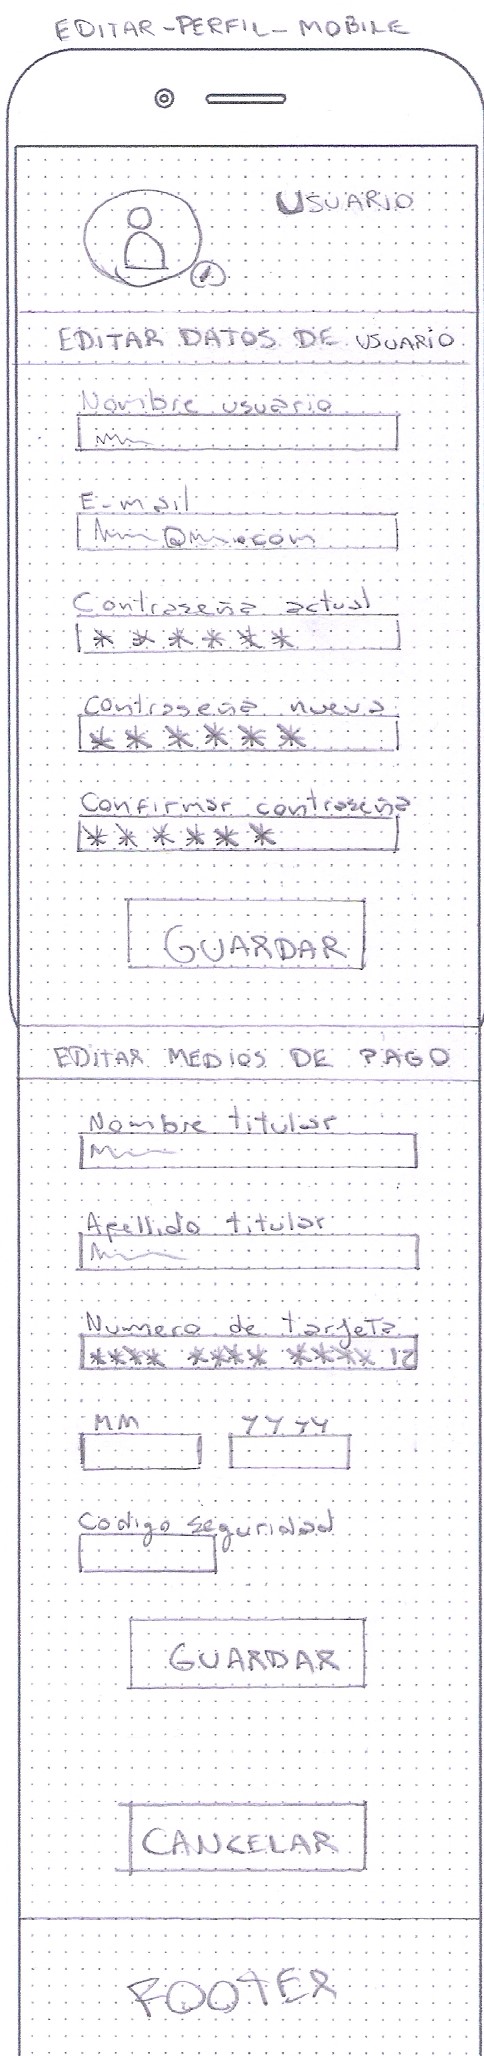 EDITAR-PERFIL-MOBILE
USUARIO
EDITAR DATOS DE USUARIO
Nombre usuario
E-mail
@ .com
Contraseña actual
* * * * * *
Contraseña nueva
* * * * * *
Confirmar contraseña
* * * * * *
GUARDAR
EDITAR MEDIOS DE PAGO
Nombre titular
Apellido titular
Numero de tarjeta
**** **** **** 12
MM YYYY
Codigo seguridad
GUARDAR
CANCELAR
FOOTER